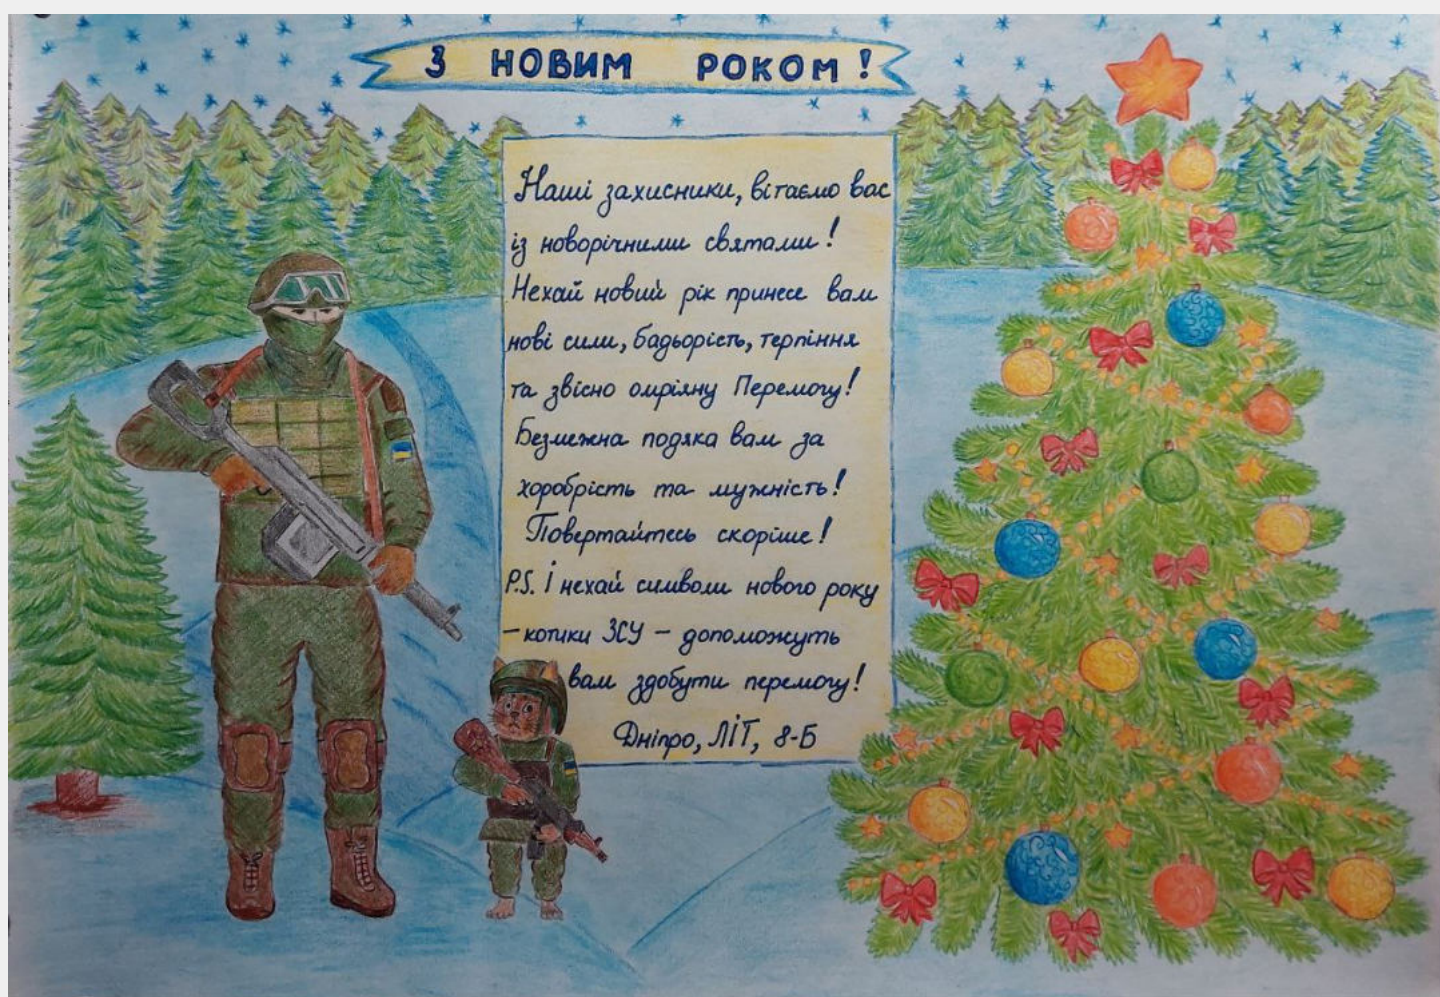 З НОВИМ РОКОМ!
Наші захисники, вітаємо вас
із новорічними святами!
Нехай новий рік принесе вам
нові сили, бадьорість, терпіння
та звісно омріяну Перемогу!
Безмежна подяка вам за
хоробрість та мужність!
Повертайтесь скоріше!
P.S. І нехай символи нового року
– котики ЗСУ – допоможуть
вам здобути перемогу!
Дніпро, ЛІТ, 8-Б